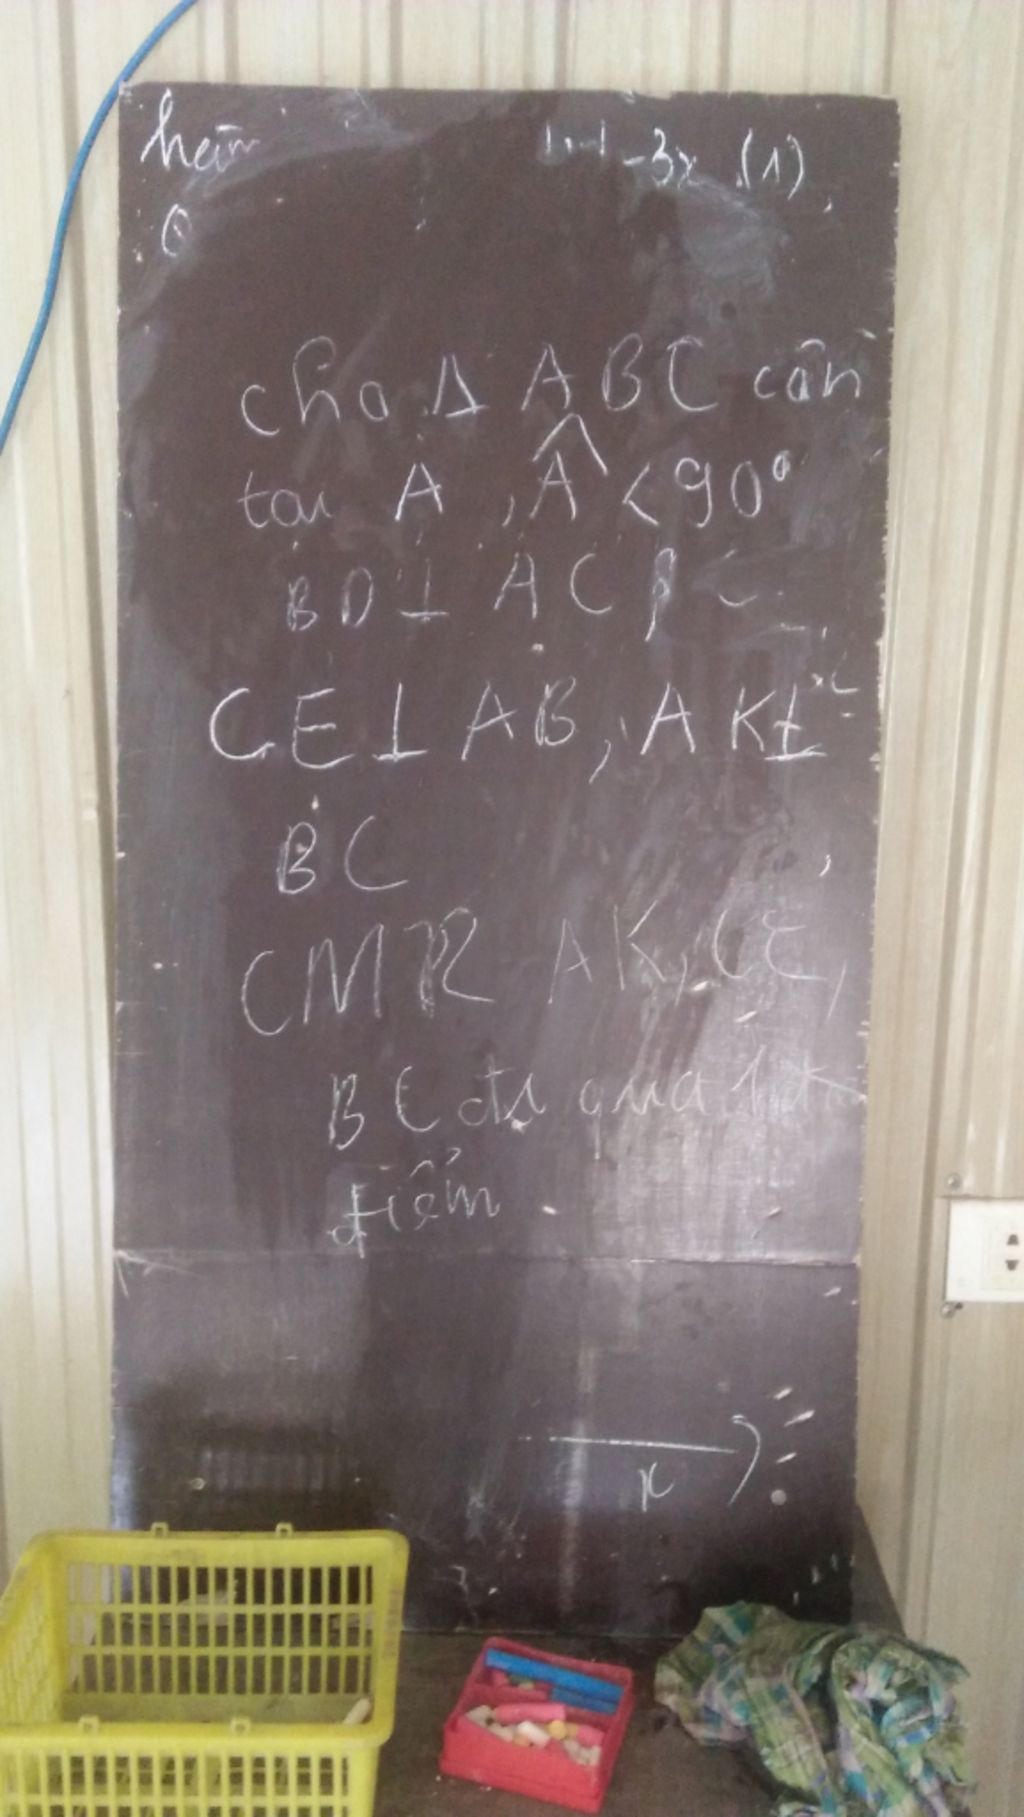 -3x (1)
cho Δ ABC cân
tại A, Â < 90°
BD ⊥ AC
CE ⊥ AB, AK ⊥
BC
CMR AK, CE,
BC đi qua 1
điểm
x